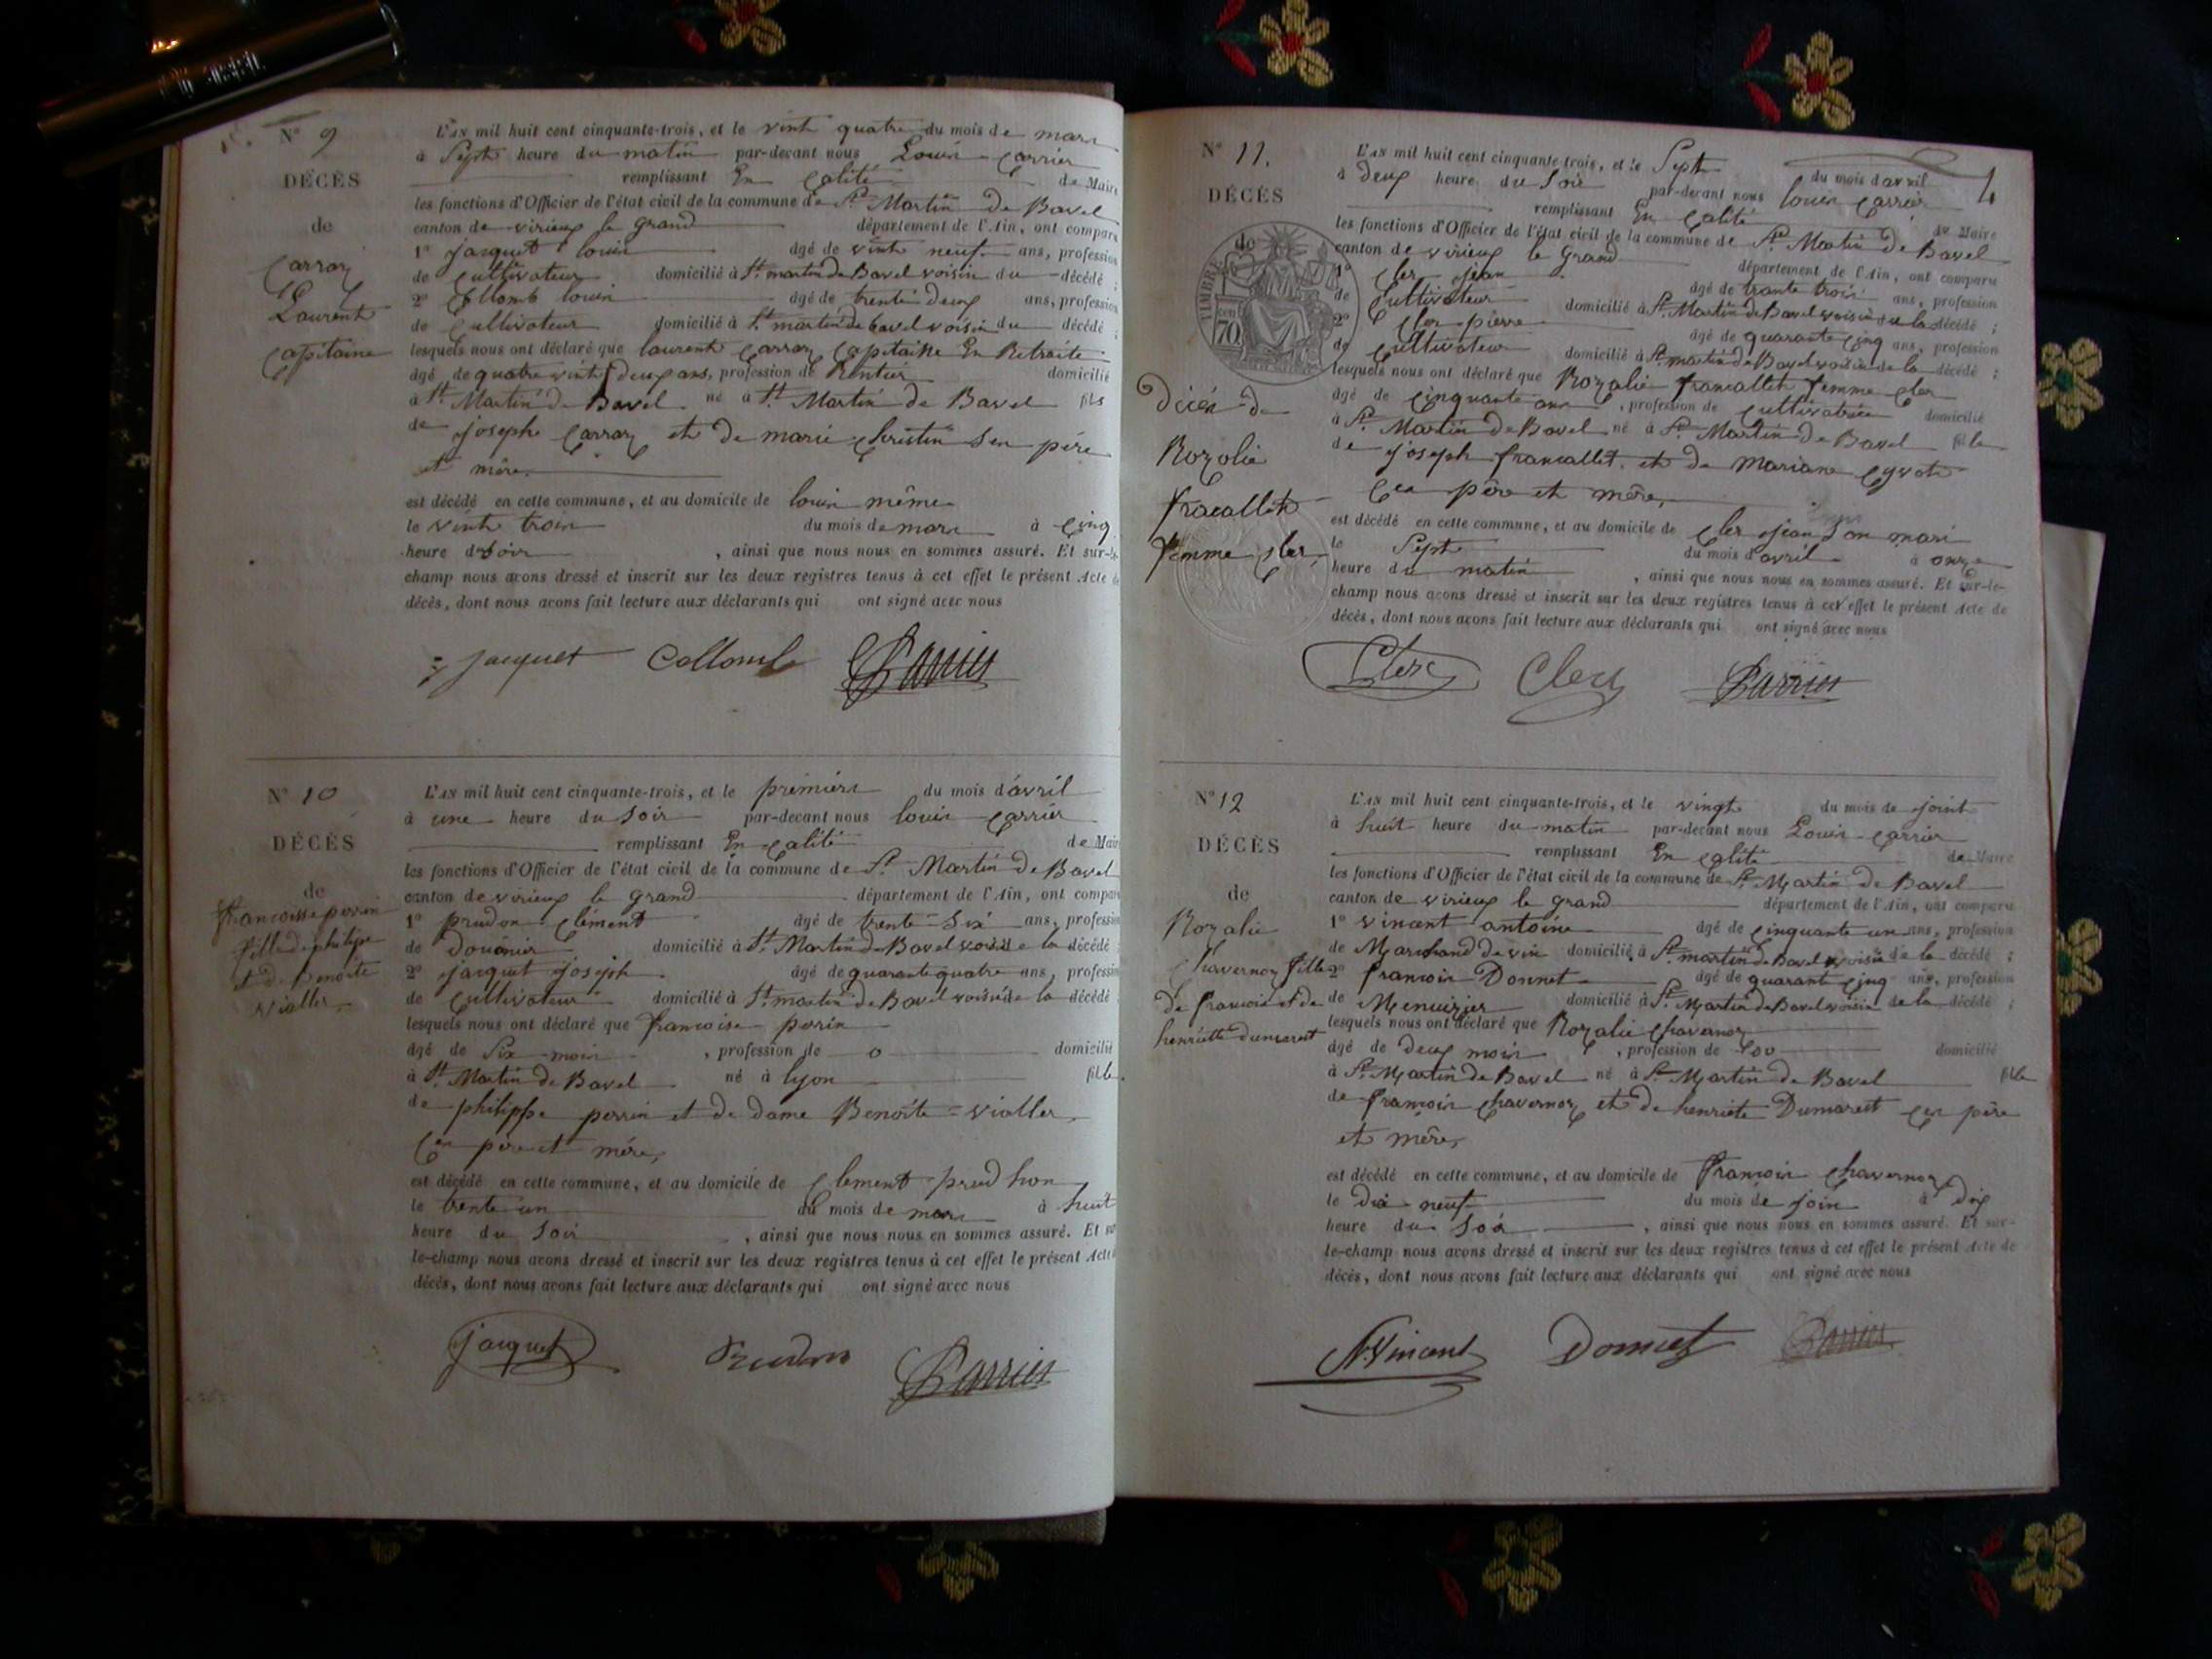 N° 9
DÉCÈS
de
Carraz
Laurent
Capitaine
L'AN mil huit cent cinquante-trois, et le vint quatre du mois de mars
à Sept heure du matin par-devant nous Louis Carrier
remplissant En Calité de Maire
les fonctions d'Officier de l'état civil de la commune de St Martin De Bavel
canton de virieux le grand département de l'Ain, ont comparu
1° jacquet louis âgé de vint neuf ans, profession
de Cultivateur domicilié à St martin de Bavel voisin du décédé ;
2° Collomb louis âgé de trente deux ans, profession
de Cultivateur domicilié à St martin de bavel voisin du décédé ;
lesquels nous ont déclaré que laurent Carraz Capitaine En Retraite
âgé de quatre vint deux ans, profession de Rentier domicilié
à St Martin de Bavel né à St Martin de Bavel fils
de joseph Carraz et de marie Christin Sen père
et mère
est décédé en cette commune, et au domicile de louis même
le vint trois du mois de mars à Cinq
heure du Soir , ainsi que nous nous en sommes assuré. Et sur-le-
champ nous avons dressé et inscrit sur les deux registres tenus à cet effet le présent Acte de
décès, dont nous avons fait lecture aux déclarants qui ont signé avec nous
jacquet Collomb Carrier
N° 10
DÉCÈS
de
francoise perrin
fille de philipe
et de Benoite
vialler
L'AN mil huit cent cinquante-trois, et le premiers du mois d'avril
à une heure du Soir par-devant nous louis Carrier
remplissant En Calité de Maire
les fonctions d'Officier de l'état civil de la commune de St Martin De Bavel
canton de virieux le grand département de l'Ain, ont comparu
1° prudon Clément âgé de trente Six ans, profession
de Douanier domicilié à St Martin de Bavel voisin de la décédé
2° jacquet joseph âgé de quarante quatre ans, profession
de Cultivateur domicilié à St martin de Bavel voisin de la décédé
lesquels nous ont déclaré que francoise perrin
âgé de Six mois , profession de o domicilié
à St Martin de Bavel né à lyon fille
de philippe perrin et de dame Benoite = vialler
Ces père et mère,
est décédé en cette commune, et au domicile de Clement prud hon
le trente un du mois de mars à huit
heure du Soir , ainsi que nous nous en sommes assuré. Et sur-
le-champ nous avons dressé et inscrit sur les deux registres tenus à cet effet le présent Acte
décès, dont nous avons fait lecture aux déclarants qui ont signé avec nous
jacquet Prudon Carrier
4
N° 11.
DÉCÈS
de
TIMBRE
70 cen
Décés de
Rozalie
fracallet
femme Cler
L'AN mil huit cent cinquante-trois, et le Sept du mois d'avril
à deux heure du Soir par-devant nous louis Carrier
remplissant En Calité de Maire
les fonctions d'Officier de l'état civil de la commune de St Martin De Bavel
canton de virieux le grand département de l'Ain, ont comparu
1° Cler jean âgé de trante trois ans, profession
de Cultivateur domicilié à St Martin de Bavel voisin de la décédé ;
2° Cler pierre âgé de quarante Cinq ans, profession
de Cultivateur domicilié à St martin de Bavel voisin de la décédé ;
lesquels nous ont déclaré que Rozalie francallet femme Cler
âgé de Cinquante ans , profession de Cultivatrice domicilié
à St Martin De Bavel né à St Martin De Bavel fille
de joseph francallet et de Mariane
Ces père et mère,
est décédé en cette commune, et au domicile de Cler jean Son mari
le Sept du mois d'avril à onze
heure du matin , ainsi que nous nous en sommes assuré. Et sur-le-
champ nous avons dressé et inscrit sur les deux registres tenus à cet effet le présent Acte de
décès, dont nous avons fait lecture aux déclarants qui ont signé avec nous
Clerc Clerc Carrier
N° 12
DÉCÈS
de
Rozalie
Chavernoz fille
De francois et de
henriette dumarest
L'AN mil huit cent cinquante-trois, et le vingt du mois de joint
à huit heure du matin par-devant nous Louis Carrier
remplissant En Calité de Maire
les fonctions d'Officier de l'état civil de la commune de St Martin De Bavel
canton de virieux le grand département de l'Ain, ont comparu
1° vincent antoine âgé de Cinquante un ans, profession
de Marchand de vin domicilié à St martin de Bavel voisin de la décédé ;
2° francois Donnet âgé de quarante Cinq ans, profession
de Menuizier domicilié à St Martin de Bavel voisin de la décédé ;
lesquels nous ont déclaré que Rozalie Chavernoz
âgé de deux mois , profession de domicilié
à St Martin de Bavel né à St Martin De Bavel fille
de francois Chavernoz et de henriete Dumarest Ces père
et mère,
est décédé en cette commune, et au domicile de francois Chavernoz
le Dix neuf du mois de join à Dix
heure du Soir , ainsi que nous nous en sommes assuré. Et sur-
le-champ nous avons dressé et inscrit sur les deux registres tenus à cet effet le présent Acte de
décès, dont nous avons fait lecture aux déclarants qui ont signé avec nous
Vincent Donnet Carrier